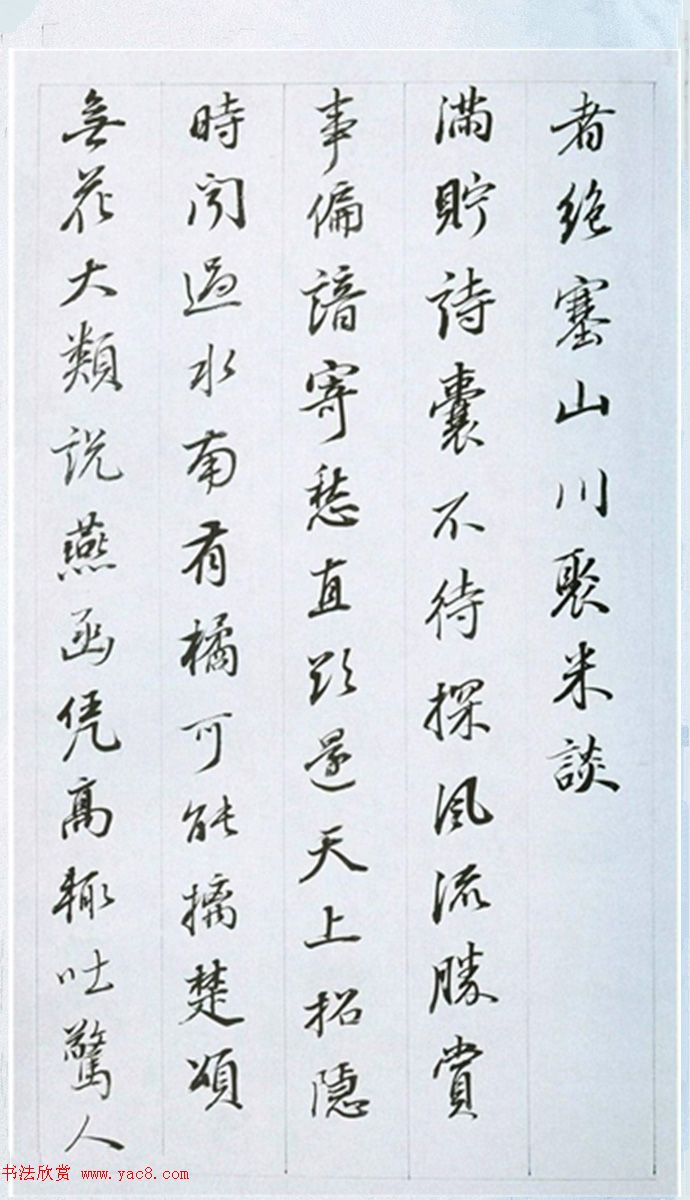 者絶塞山川聚米談
滿貯詩囊不待探風流勝賞
事偏諳寄愁直欲還天上招隱
時聞過水南有橘可能摘楚頌
無花大類說燕函凭高輒吐驚人
书法欣赏 www.yac8.com